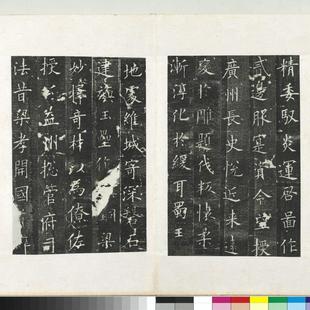 精委馭炎運啓啚作
貳邊服寔資令授
廣州長史悅近来遠
於雕題伐叛懷柔
漸淳化於緩耳蜀王
地處維城寄深石
建玉壘作梁
妙擇奇材以爲僚佐
授益州揔管府司
法昔梁孝開國